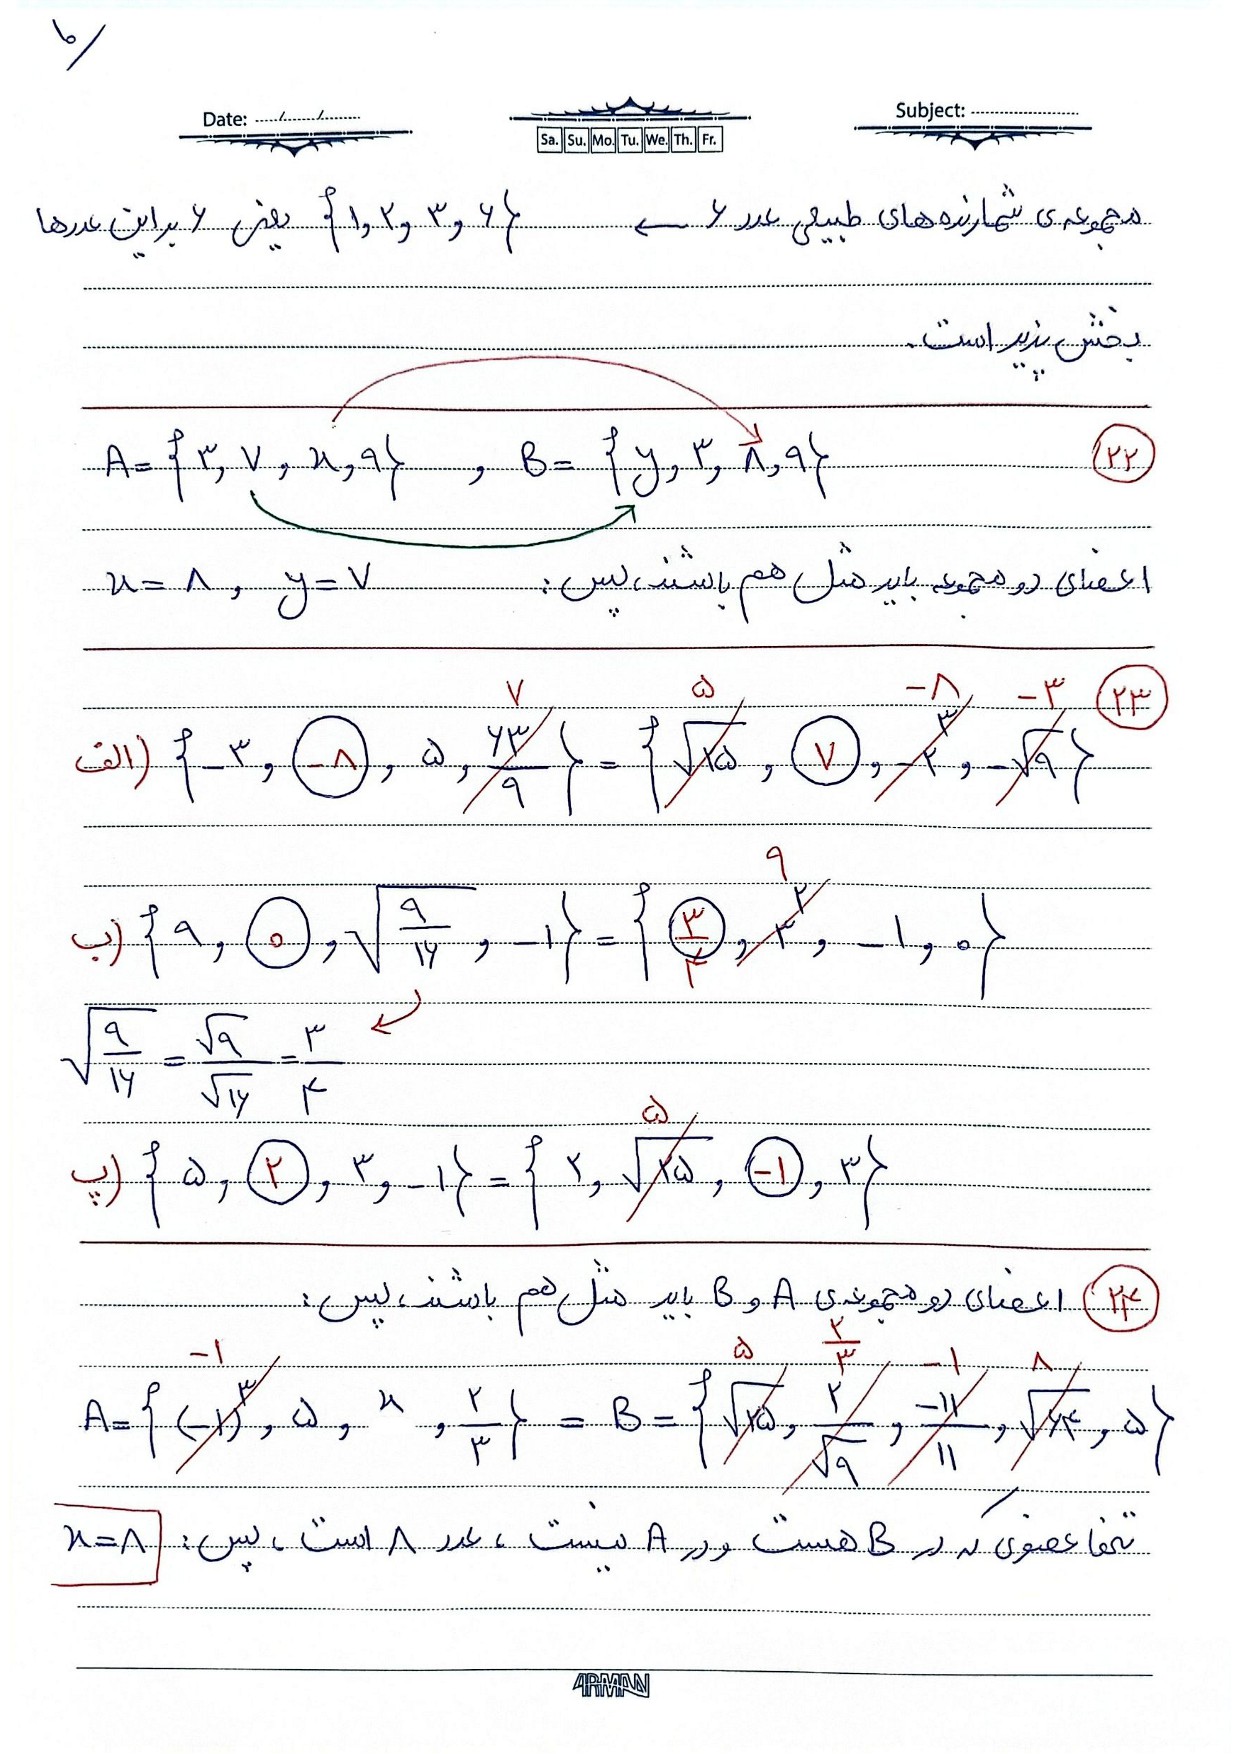 ۶
Date: ....../....../...... Subject: ..................
Sa. Su. Mo. Tu. We. Th. Fr.
مجموعه‌ی شمارنده‌های طبیعی عدد ۶ ← {۱, ۲, ۳, ۶} یعنی ۶ بر این عددها
بخش پذیر است.
۲۲ A = {۳, ۷, x, ۹} , B = {y, ۳, ۸, ۹}
اعضای دو مجموعه باید مثل هم باشند، پس: x = ۸ , y = ۷
۲۳
الف) {-۳, -۸, ۵, ۶۳/۹ ۷} = {√۲۵ ۵, ۷, -۲^۳ -۸, -√۹ -۳}
ب) {۹, ۰, √(۹/۱۶), -۱} = {۳/۴, ۳^۲ ۹, -۱, ۰}
√(۹/۱۶) = √۹/√۱۶ = ۳/۴
پ) {۵, ۲, ۳, -۱} = {۲, √۲۵ ۵, -۱, ۳}
۲۴ اعضای دو مجموعه‌ی A و B باید مثل هم باشند، پس:
A = {(-۱)^۳ -۱, ۵, x, ۲/۳} = B = {√۲۵ ۵, ۲/√۹ ۲/۳, -۱۱/۱۱ -۱, √۶۴ ۸, ۵}
تنها عضوی که در B هست و در A نیست، عدد ۸ است، پس: x = ۸
ARMAN